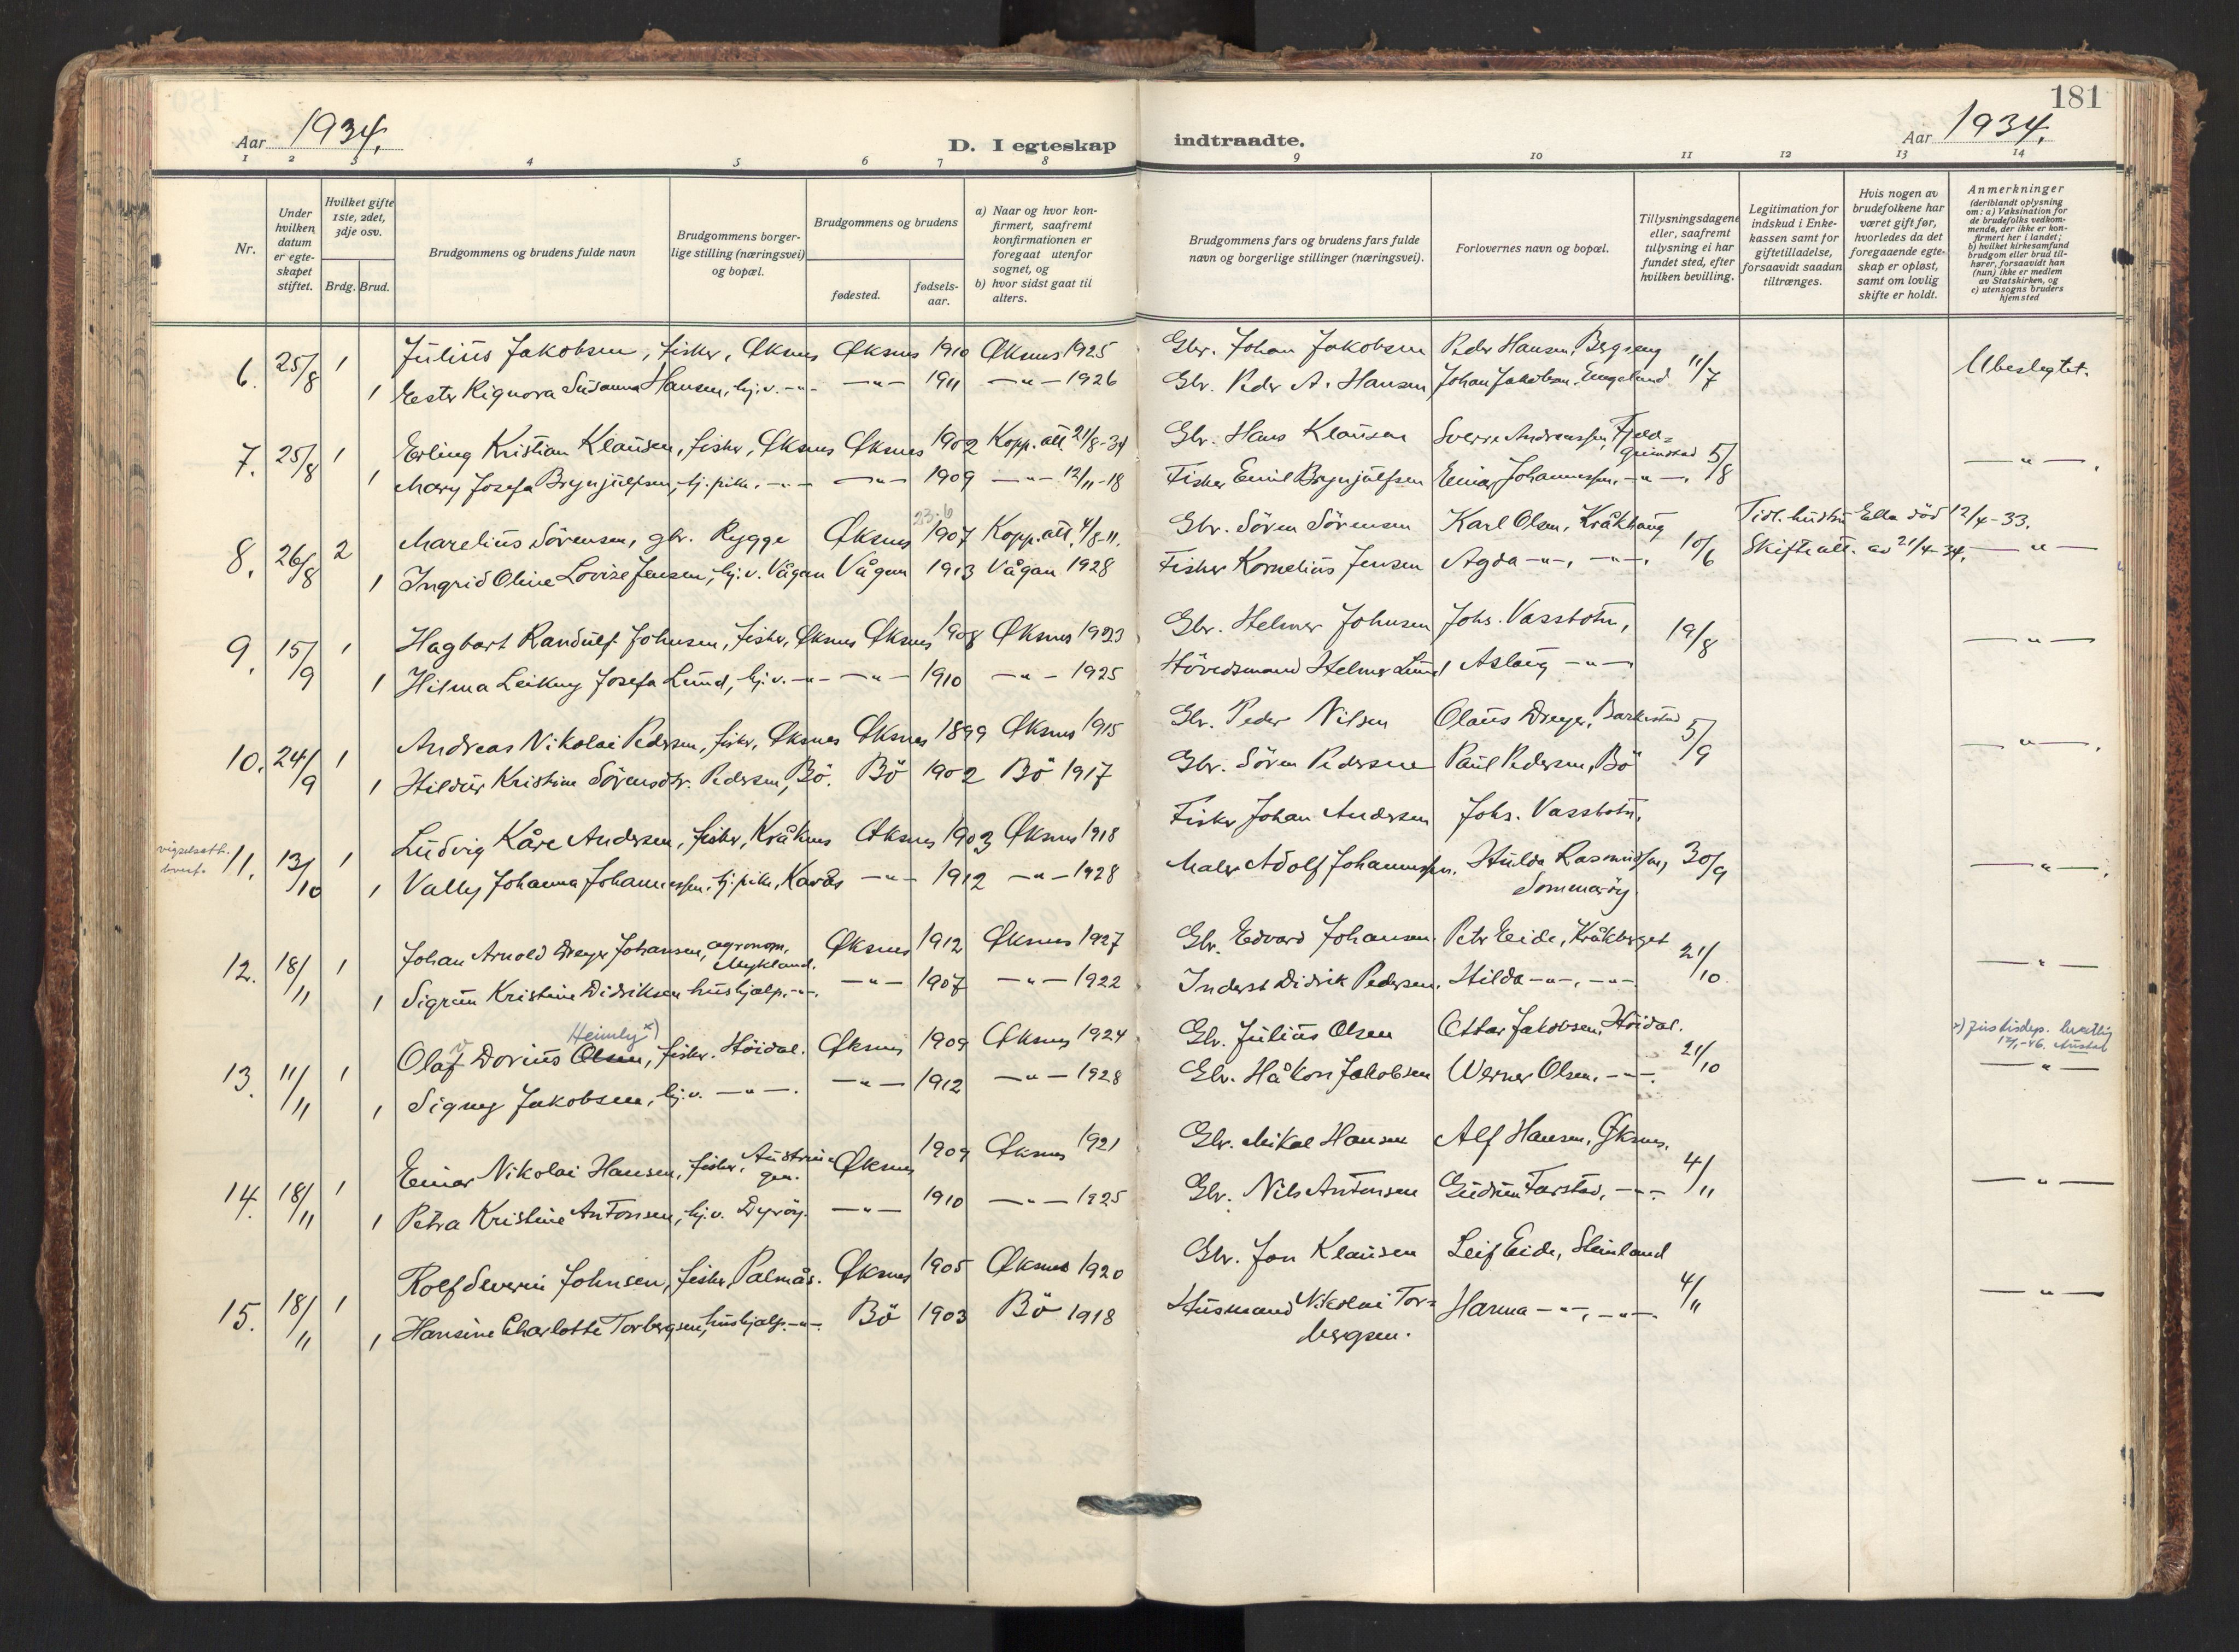 181
Aar 1934.
D. I egteskap indtraadte.
Aar 1934.
1 2 3 4 5 6 7 8 9 10 11 12 13 14
Nr.
Under hvilken datum er egte-skapet stiftet.
Hvilket gifte 1ste, 2det, 3dje osv.
Brdg. Brud.
Brudgommens og brudens fulde navn
Brudgommens borger-lige stilling (næringsvei) og bopæl.
Brudgommens og brudens
fødested.
fødsels-aar.
a) Naar og hvor kon-firmert, saafremt konfirmationen er foregaat utenfor sognet, og
b) hvor sidst gaat til alters.
Brudgommens fars og brudens fars fulde navn og borgerlige stillinger (næringsvei).
Forlovernes navn og bopæl.
Tillysningsdagene eller, saafremt tillysning ei har fundet sted, efter hvilken bevilling.
Legitimation for indskud i Enke-kassen samt for giftetilladelse, forsaavidt saadan tiltrænges.
Hvis nogen av brudefolkene har været gift før, hvorledes da det foregaaende egte-skap er opløst, samt om lovlig skifte er holdt.
Anmerkninger (deriblandt oplysning om: a) Vaksination for de brudefolks vedkom-mende, der ikke er kon-firmert her i landet; b) hvilket kirkesamfund brudgom eller brud til-hører, forsaavidt han (hun) ikke er medlem av Statskirken, og c) utensogns bruders hjemsted
6. 25/8 1 Julius Jakobsen, fisker, Øksnes Øksnes 1910 Øksnes 1925 Gbr. Johan Jakobsen Peder Hansen, Bergseng 11/7 Ubeslegtet.
1 Ester Rignora Susanna Hansen, hj.v. -"- -"- 1911 -"- 1926 Gbr. Peder A. Hansen Johan Jakobsen, Engeland
7. 25/8 1 Erling Kristian Klausen, fisker, Øksnes Øksnes 1902 Kopp.att. 21/8-34 Gbr. Hans Klausen Sverre Andreassen, Fjeld=grunstad 5/8 -"-.
1 Mary Josefa Brynjulfsen, hj.pike. -"- -"- 1909 -"- 12/11-18 Fisker Emil Brynjulfsen Einar Johannessen, -"-.
23.6
8. 26/8 2 Marelius Sörensen, gbr. Rygge Øksnes 1907 Kopp.att. 4/8-11. Gbr. Sören Sörensen Karl Olsen, Kråkhaug 10/6 Tidl. hustru Ella död 12/4-33.
1 Ingrid Oline Lovise Jensen, hj.v. Vågan Vågan 1913 Vågan 1928 Fisker Kornelius Jensen Agda -"-, -"-. Skifteatt. av 21/4-34. -"-
9. 15/9 1 Hagbart Randulf Johnsen, fisker, Øksnes Øksnes 1908 Øksnes 1923 Gbr. Helmer Johnsen Johs. Vassbotn, 19/8 -"-
1 Hilma Leikny Josefa Lund, hj.v. -"- -"- 1910 -"- 1925 Hövedsmand Helmer Lund Aslaug -"-
10. 24/9 1 Andreas Nikolai Pedersen, fisker, Øksnes Øksnes 1899 Øksnes 1915 Gbr. Peder Nilsen Olaus Dreyer, Barkestad 5/9 -"-.
1 Hildur Kristine Sörensdtr. Pedersen, Bö. Bö 1902 Bö 1917 Gbr. Sören Pedersen Paul Pedersen, Bö
vigselsatt.
11. 13/10 1 Ludvig Kåre Andersen, fisker, Kråknes Øksnes 1903 Øksnes 1918 Fisker Johan Andersen Johs. Vassbotn. 30/9 -"-.
1 Vally Johanna Johannessen, hj.pike, Kavås -"- 1912 -"- 1928 Maler Adolf Johannessen, Hulda Rasmussen, Sommaröy
12. 18/11 1 Johan Arnold Dreyer Johansen, agronom, Mykland. Øksnes 1912 Øksnes 1927 Gbr. Edvard Johansen. Petr Eide, Kråkberget 21/10 -"-
1 Sigrun Kristine Didriksen hushjelp. -"-. -"- 1907 -"- 1922 Inderst Didrik Pedersen. Hilda -"-, -"-.
Heimly x)
13. 11/11 1 Olaf Dorius Olsen, fisker. Höidal. Øksnes 1909 Øksnes 1924 Gbr. Julius Olsen Ottar Jakobsen, Höidal. 21/10 x) Justisdep. -46.
1 Signy Jakobsen, hj.v. -"-. -"- 1912 -"- 1928 Gbr. Håkon Jakobsen Werner Olsen, -"-. -"-
14. 18/11 1 Einar Nikolai Hansen, fisker, Austrin=gen. Øksnes 1909 Øksnes 1921 Gbr. Mikal Hansen Alf Hansen, Øksnes. 4/11 -"-
1 Petra Kristine Antonsen, hj.v. Dyröy. -"- 1910 -"- 1925 Gbr. Nils Antonsen Gudrun Farstad, -"-
15. 18/11 1 Rolf Severin Johnsen, fisker, Palmås. Øksnes 1905 Øksnes 1920 Gbr. Jon Klausen Leif Eide, Steinland 4/11 -"-
1 Hansine Charlotte Torbergsen, hushjelp. -"-. Bö 1903 Bö 1918 Husmand Nikolai Tor=bergsen. Hanna -"-, -"-